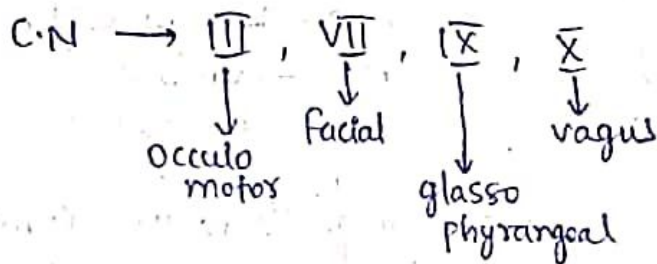 C.N → III, VII, IX, X
Occulo
motor
facial
glasso
phyrangeal
vagus